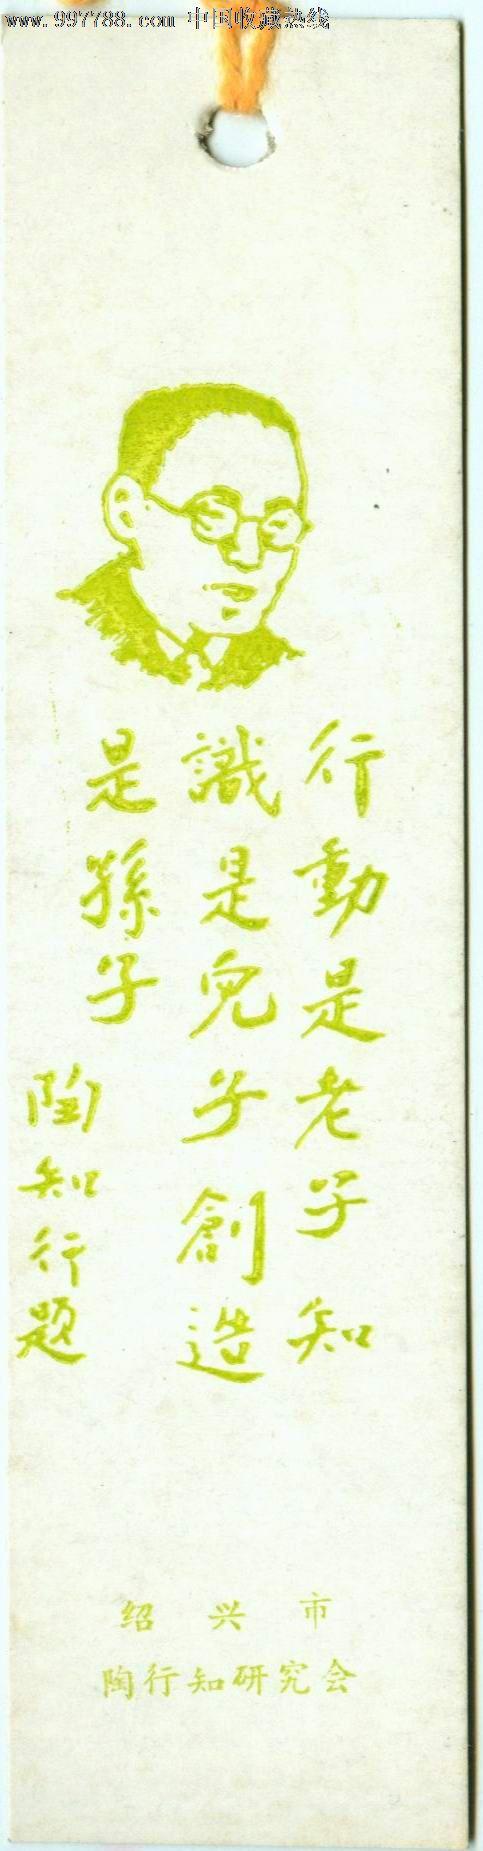 www.997788.com 中国收藏热线
行動是老子知
識是兒子創造
是孫子
陶知行题
绍兴市
陶行知研究会